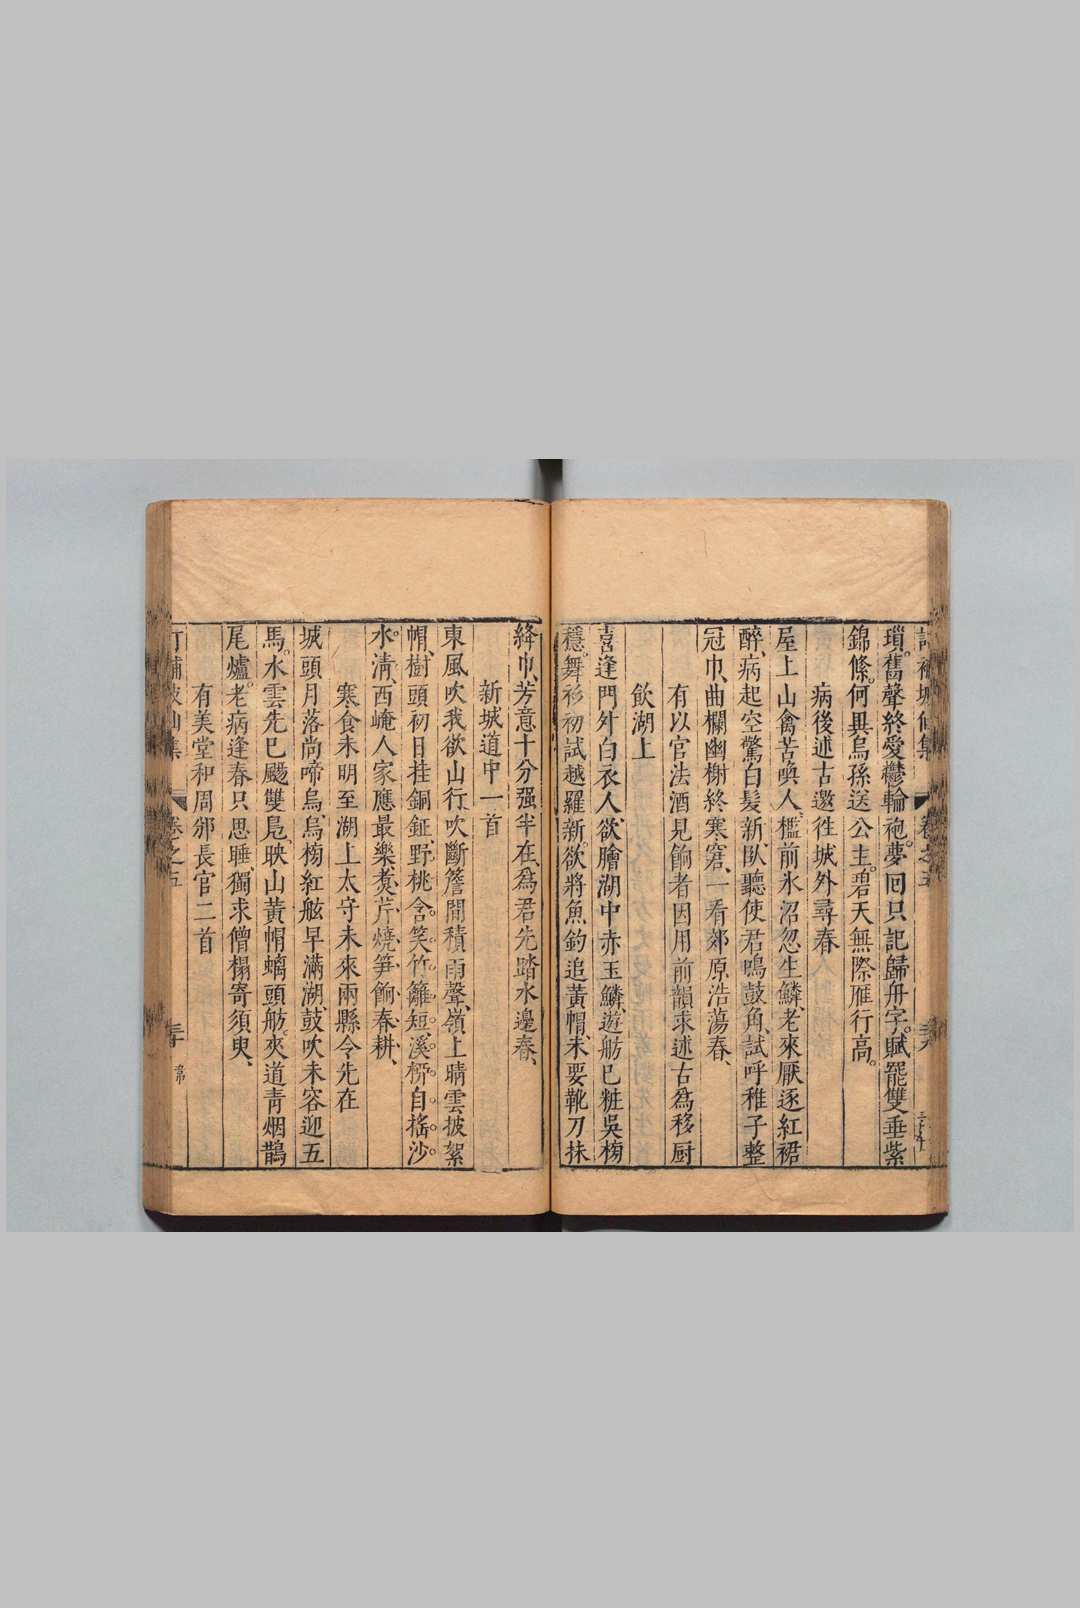 瑣。舊聲終愛鬱輪袍。夢回只記歸舟字。賦罷雙垂紫
錦絛。何異烏孫送公主。碧天無際雁行高。
病後述古邀徃城外尋春
屋上山禽苦喚人、檻前氷沼忽生鱗、老來厭逐紅裙
醉、病起空驚白髮新、臥聽使君鳴鼓角、試呼稚子整
冠巾、曲欄幽榭終寒窘、一看郊原浩蕩春、
有以官法酒見餉者因用前韻求述古爲移厨
飲湖上
喜逢門外白衣人、欲膾湖中赤玉鱗、遊舫已粧吳榜
穩、舞衫初試越羅新。欲將魚釣追黃帽、未要靴刀抹
絳巾、芳意十分强半在、爲君先踏水邊春、
新城道中一首
東風吹我欲山行、吹斷簷間積雨聲、嶺上晴雲披絮
帽、樹頭初日挂銅鉦、野桃含笑竹籬短、溪栁自搖沙
水。清、西崦人家應最樂、煑芹燒笋餉春耕、
寒食未明至湖上太守未來兩縣令先在
城頭月落尚啼烏、烏榜紅舷早滿湖、鼓吹未容迎五
馬。水雲先已颺雙鳧、映山黃帽螭頭舫。夾道青烟鵲
尾爐。老病逢春只思睡、獨求僧榻寄須臾、
有美堂和周邠長官二首
卷之五